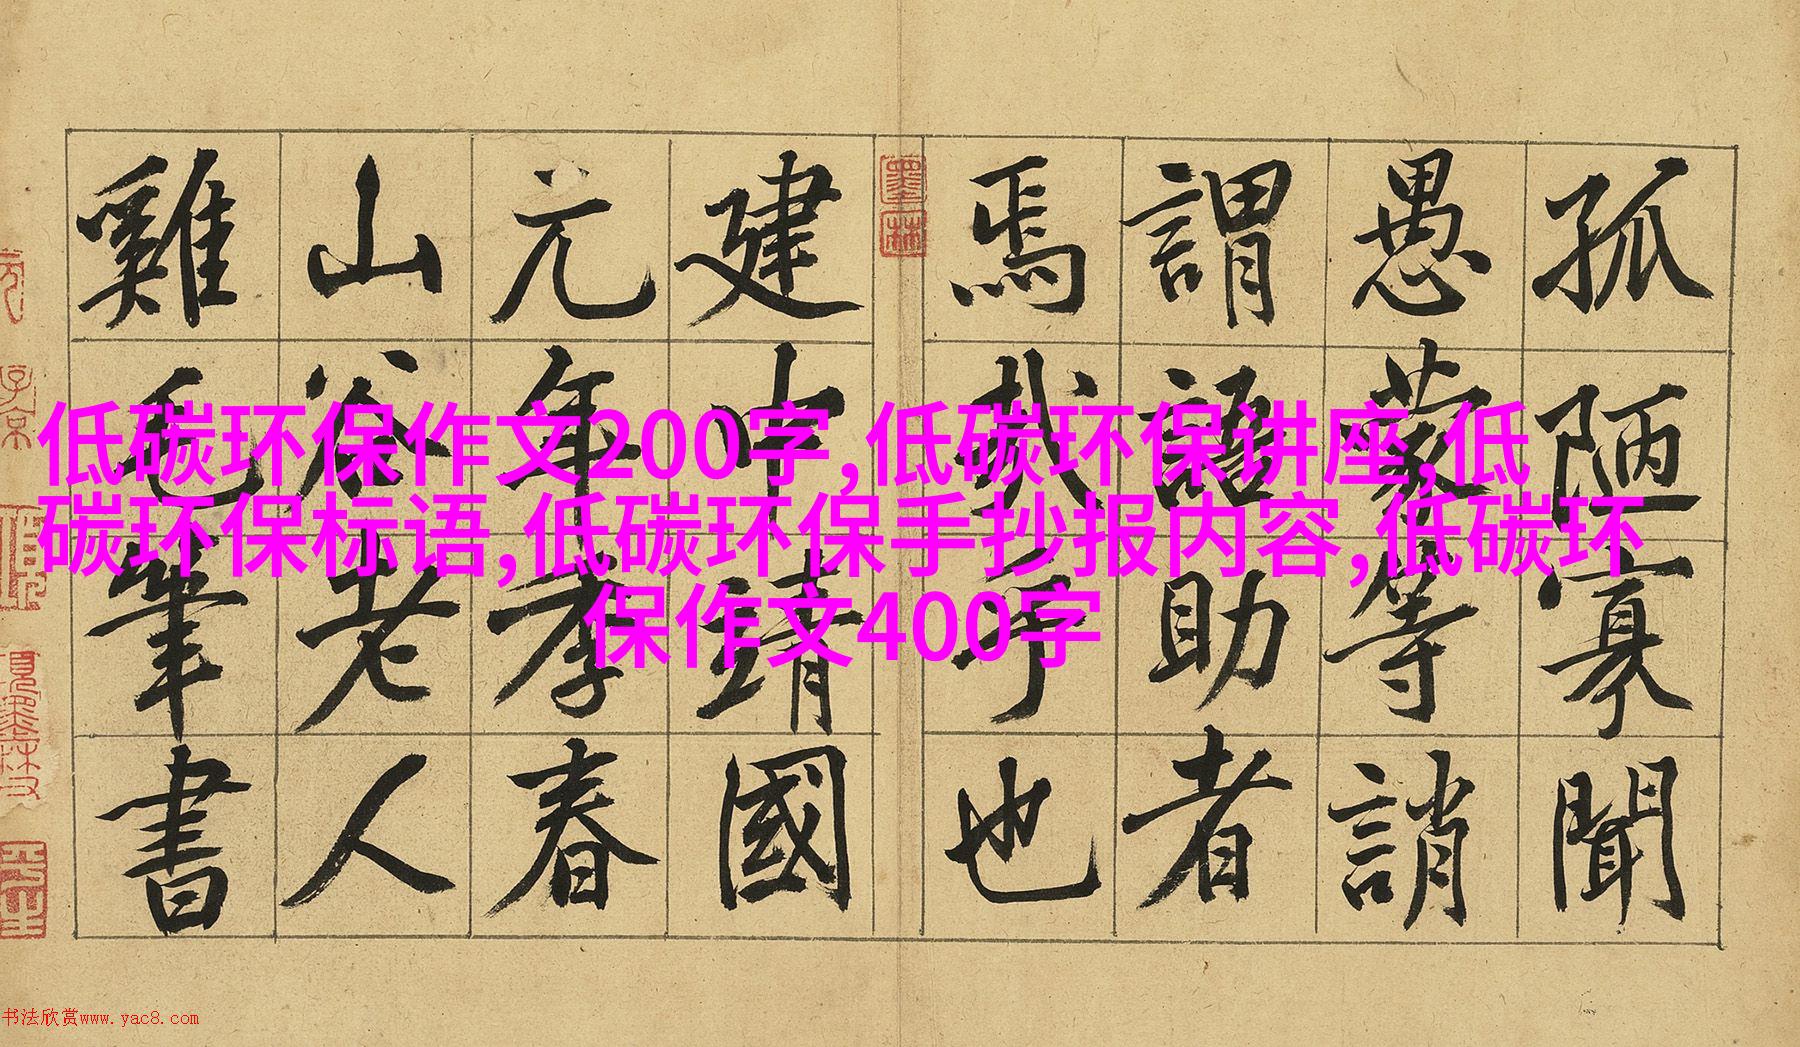 孤陋寡聞
愚蒙等誚
謂語助者
焉哉乎也
建中靖國
元年孝春
山谷老人
雞毛筆書
低碳环保作文200字,低碳环保讲座,低
碳环保标语,低碳环保手抄报内容,低碳环
保作文400字
墨林
子京
书法欣赏www.yac8.com